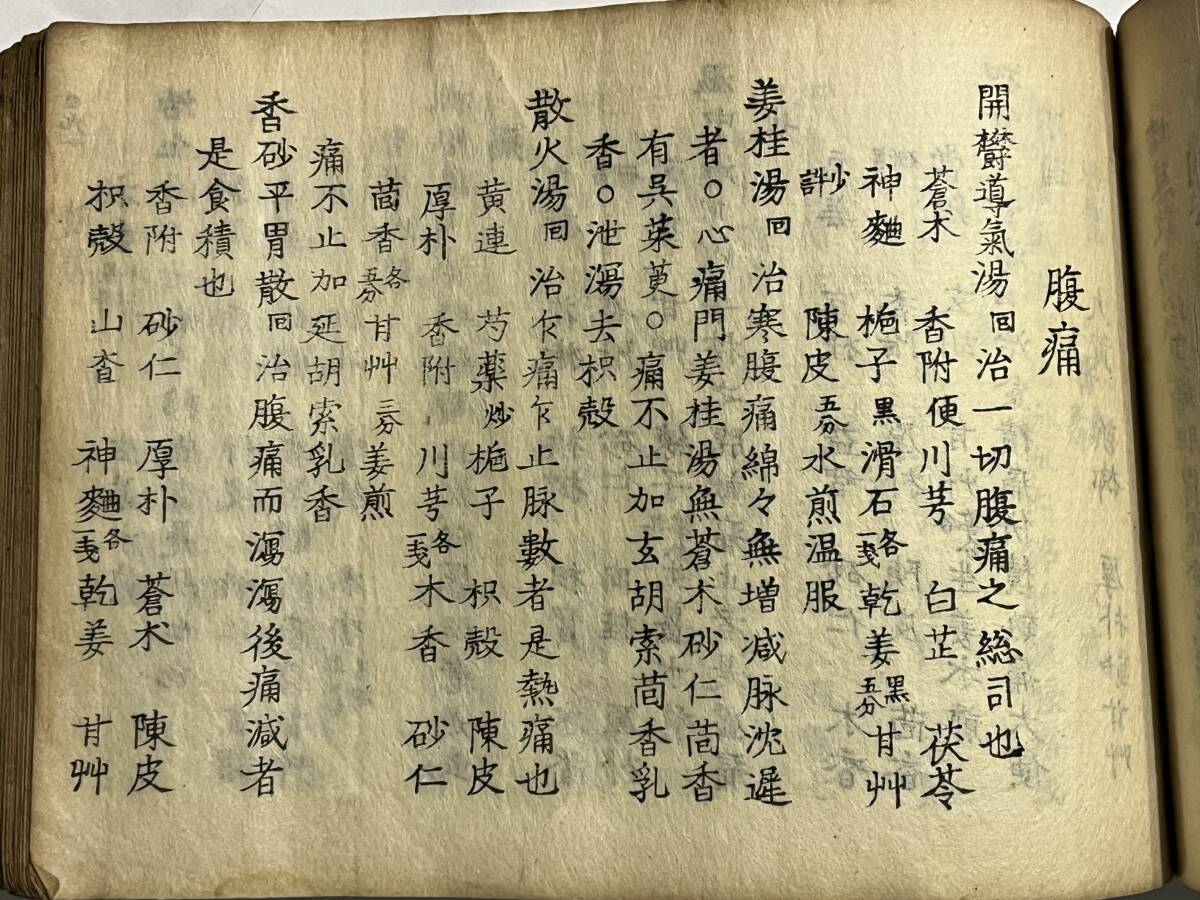 腹痛
開欝導氣湯回治一切腹痛之総司也
蒼朮 香附便川芎 白芷 茯苓
神麯 梔子黒滑石各一戔乾姜黒五分甘艸
少許 陳皮五分水煎温服
姜桂湯回 治寒腹痛綿々無増减脉沈遅
者○心痛門姜桂湯無蒼朮砂仁茴香
有呉茱萸○痛不止加玄胡索茴香乳
香○泄瀉去枳殻
散火湯回 治乍痛乍止脉數者是熱痛也
黄連 芍藥炒梔子 枳殻 陳皮
厚朴 香附 川芎各一戔木香 砂仁
茴香各五分甘艸三分姜煎
痛不止加延胡索乳香
香砂平胃散回 治腹痛而瀉瀉後痛减者
是食積也
香附 砂仁 厚朴 蒼朮 陳皮
枳殻 山査 神麯各一戔乾姜 甘艸